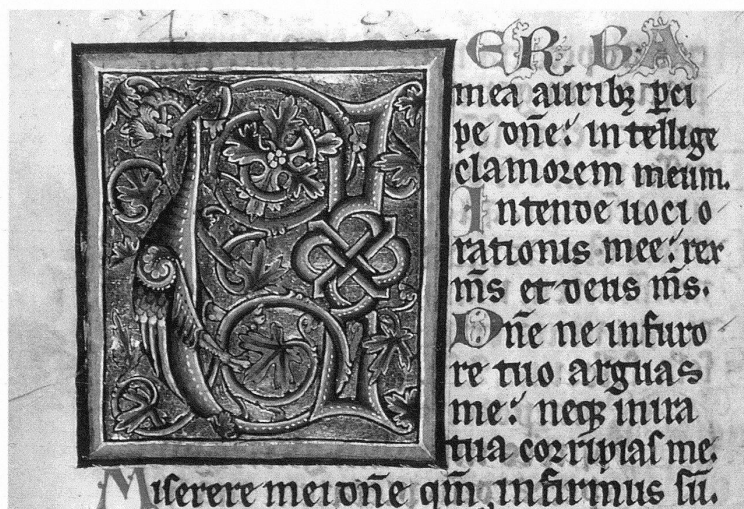 VERBA
mea auribꝫ ꝑci
pe dn̄e: intellige
clamorem meum.
Intende uoci o
rationis mee: rex
m̄s et deus m̄s.
Dn̄e ne in furo
re tuo arguas
me: neqꝫ in ira
tua corripias me.
Miserere mei dn̄e qm̄ infirmus sū.